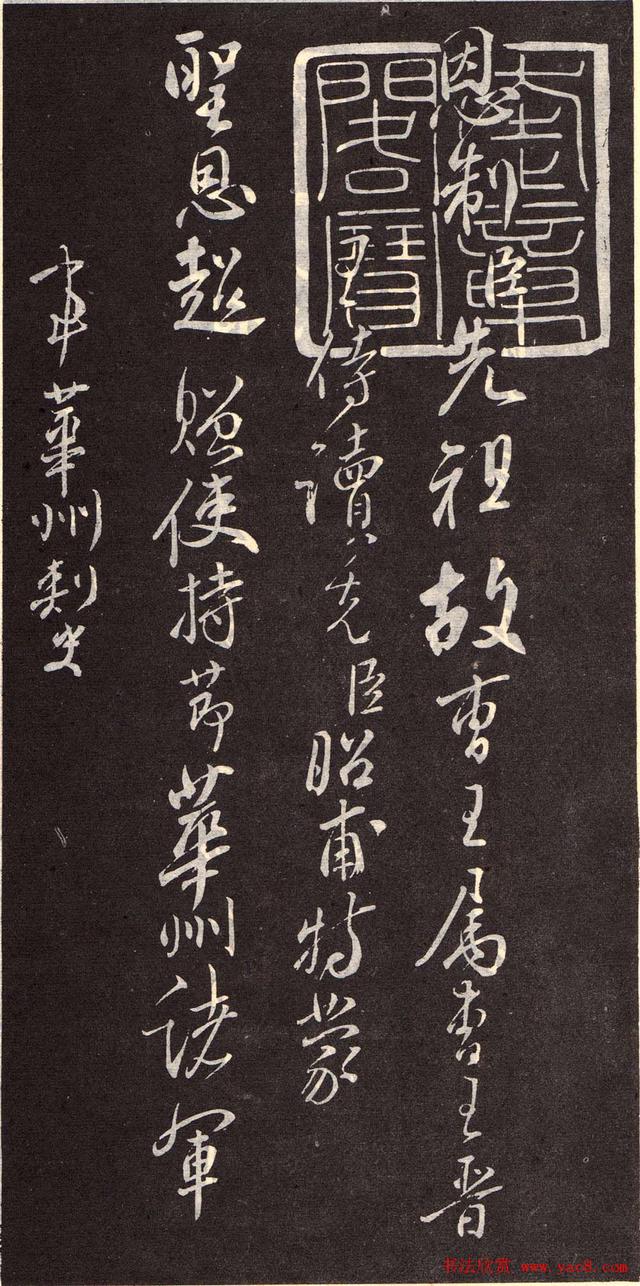 恩制臣先祖故曹王属王晋
王侍讀先臣昭甫特蒙
聖恩超贈使持節華州諸軍
事華州刺史
书法欣赏 www.yac8.com